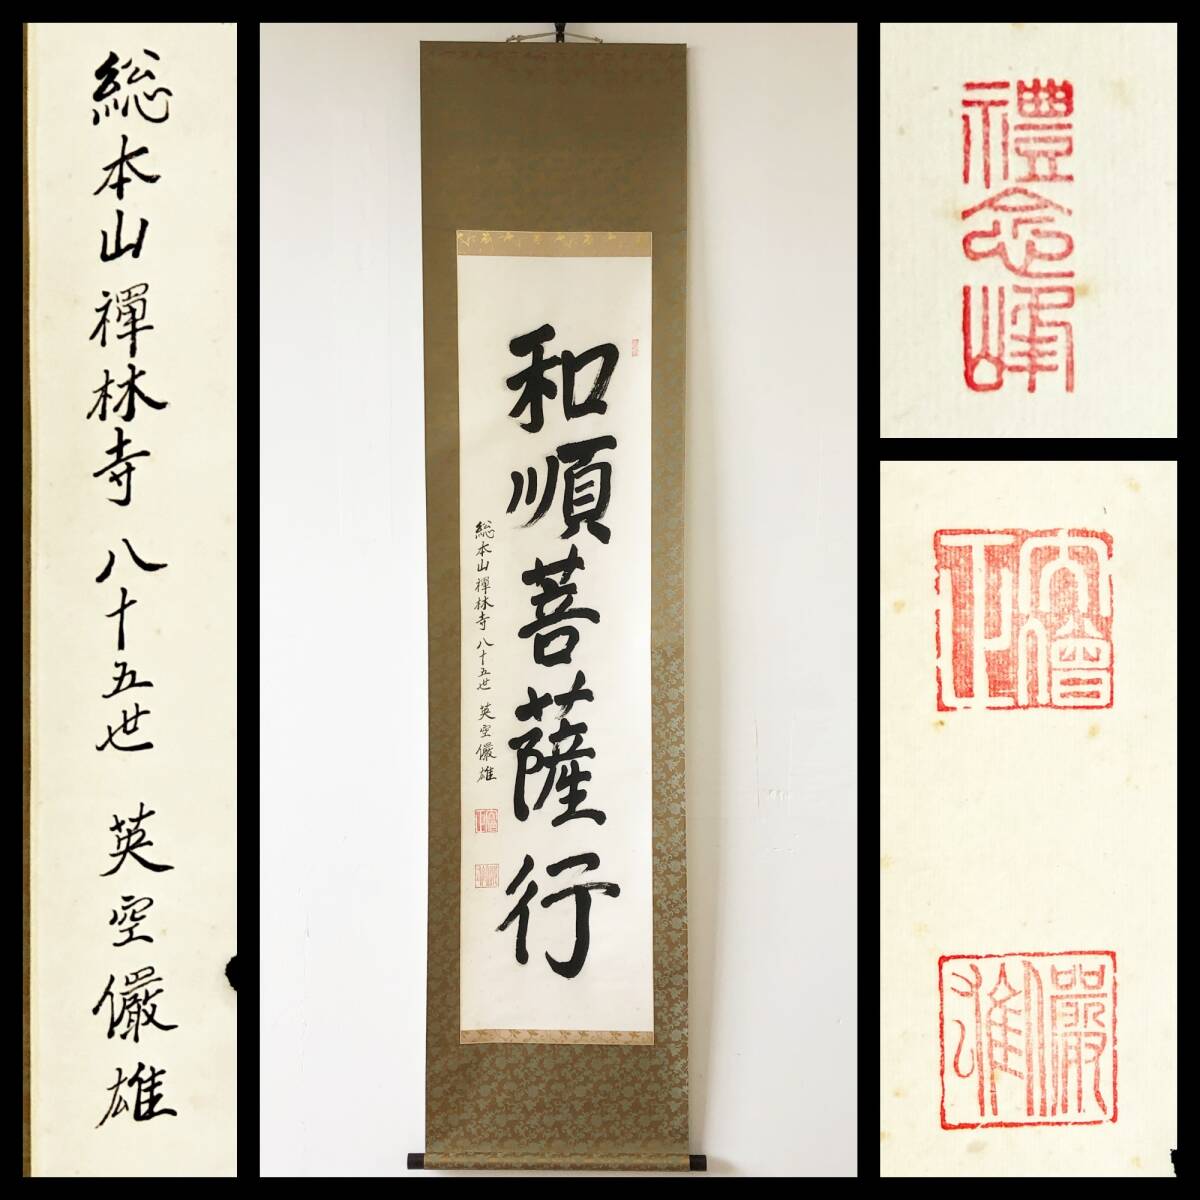 総本山禅林寺 八十五世 英空儼雄
和順菩薩行
総本山禅林寺 八十五世 英空儼雄
禮念峰
大僧正
儼雄